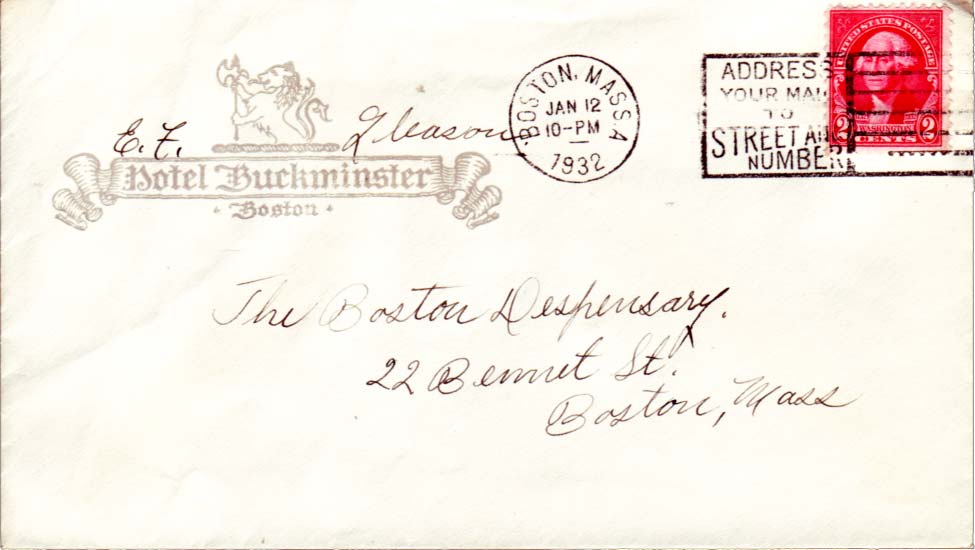 E. F. Gleason
Hotel Buckminster
Boston
BOSTON, MASS A
JAN 12
10-PM
1932
ADDRESS
YOUR MAIL
TO
STREET AND
NUMBER
UNITED STATES POSTAGE
2 WASHINGTON 2
CENTS
The Boston Despensary.
22 Bennet St.
Boston, Mass